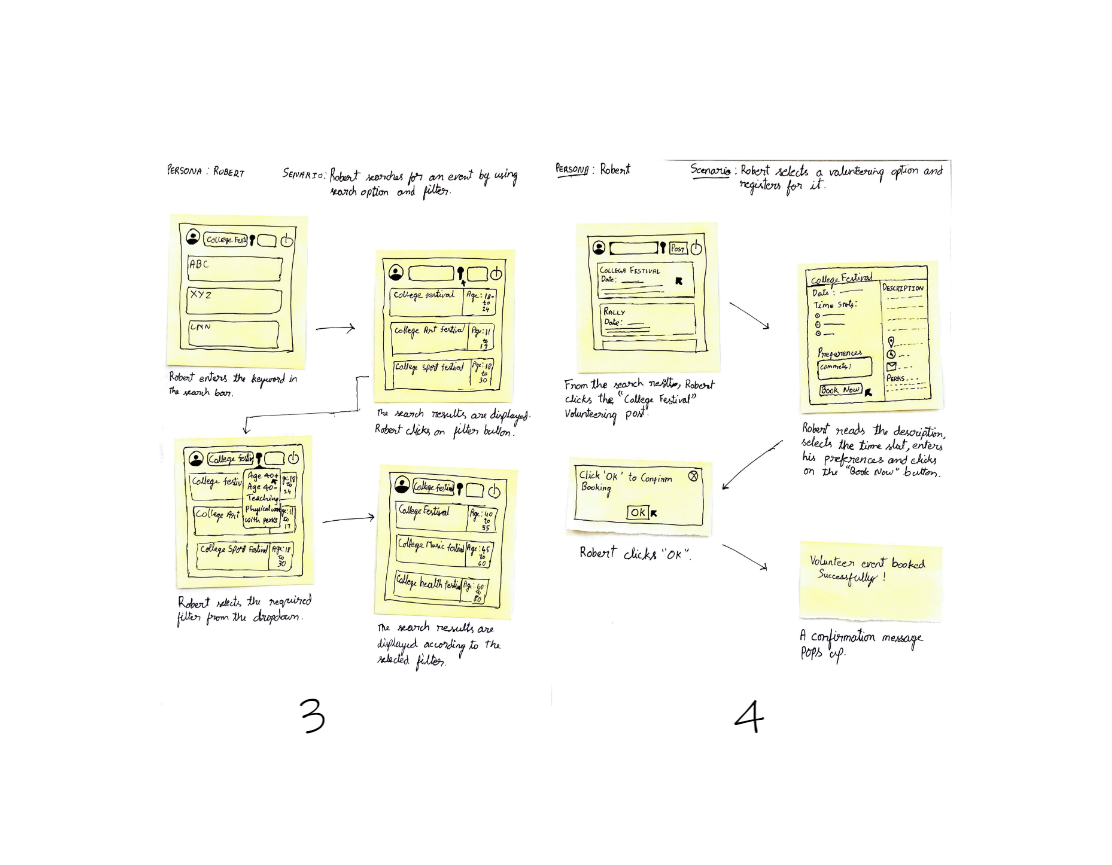 PERSONA : ROBERT
SENARIO: Robert searches for an event by using
search option and filter.
College Fest
ABC
XYZ
LMN
Robert enters the keyword in
the search bar.
College festival
Age: 18-
to
24
College Art festival
Age: 11
to
17
College sport festival
Age: 18
to
30
The search results are displayed.
Robert clicks on filter button.
College festiv
Age 40+
Age 40-
Teaching
Physical
with perks
College festiv
18
to
24
College Art
11
to
17
College Sport Festival
Age: 18
to
30
Robert selects the required
filter from the dropdown.
College festival
College Festival
Age: 40
to
55
College Music festival
Age: 45
to
60
College health festival
Age: 60
80
The search results are
displayed according to the
selected filter.
3
PERSONA : Robert
Scenario : Robert selects a volunteering option and
registers for it.
Post
COLLEGE FESTIVAL
Date:
RALLY
Date:
From the search results, Robert
clicks the "College Festival"
Volunteering post
College Festival
Date :
Time Slots:
Preferences
comments!
Book Now
DESCRIPTION
PERKS...
Robert reads the description,
selects the time slot, enters
his preferences and clicks
on the "Book Now" button.
Click 'OK' to Confirm
Booking
OK
Robert clicks "OK".
Volunteer event booked
Successfully !
A confirmation message
POPS up.
4